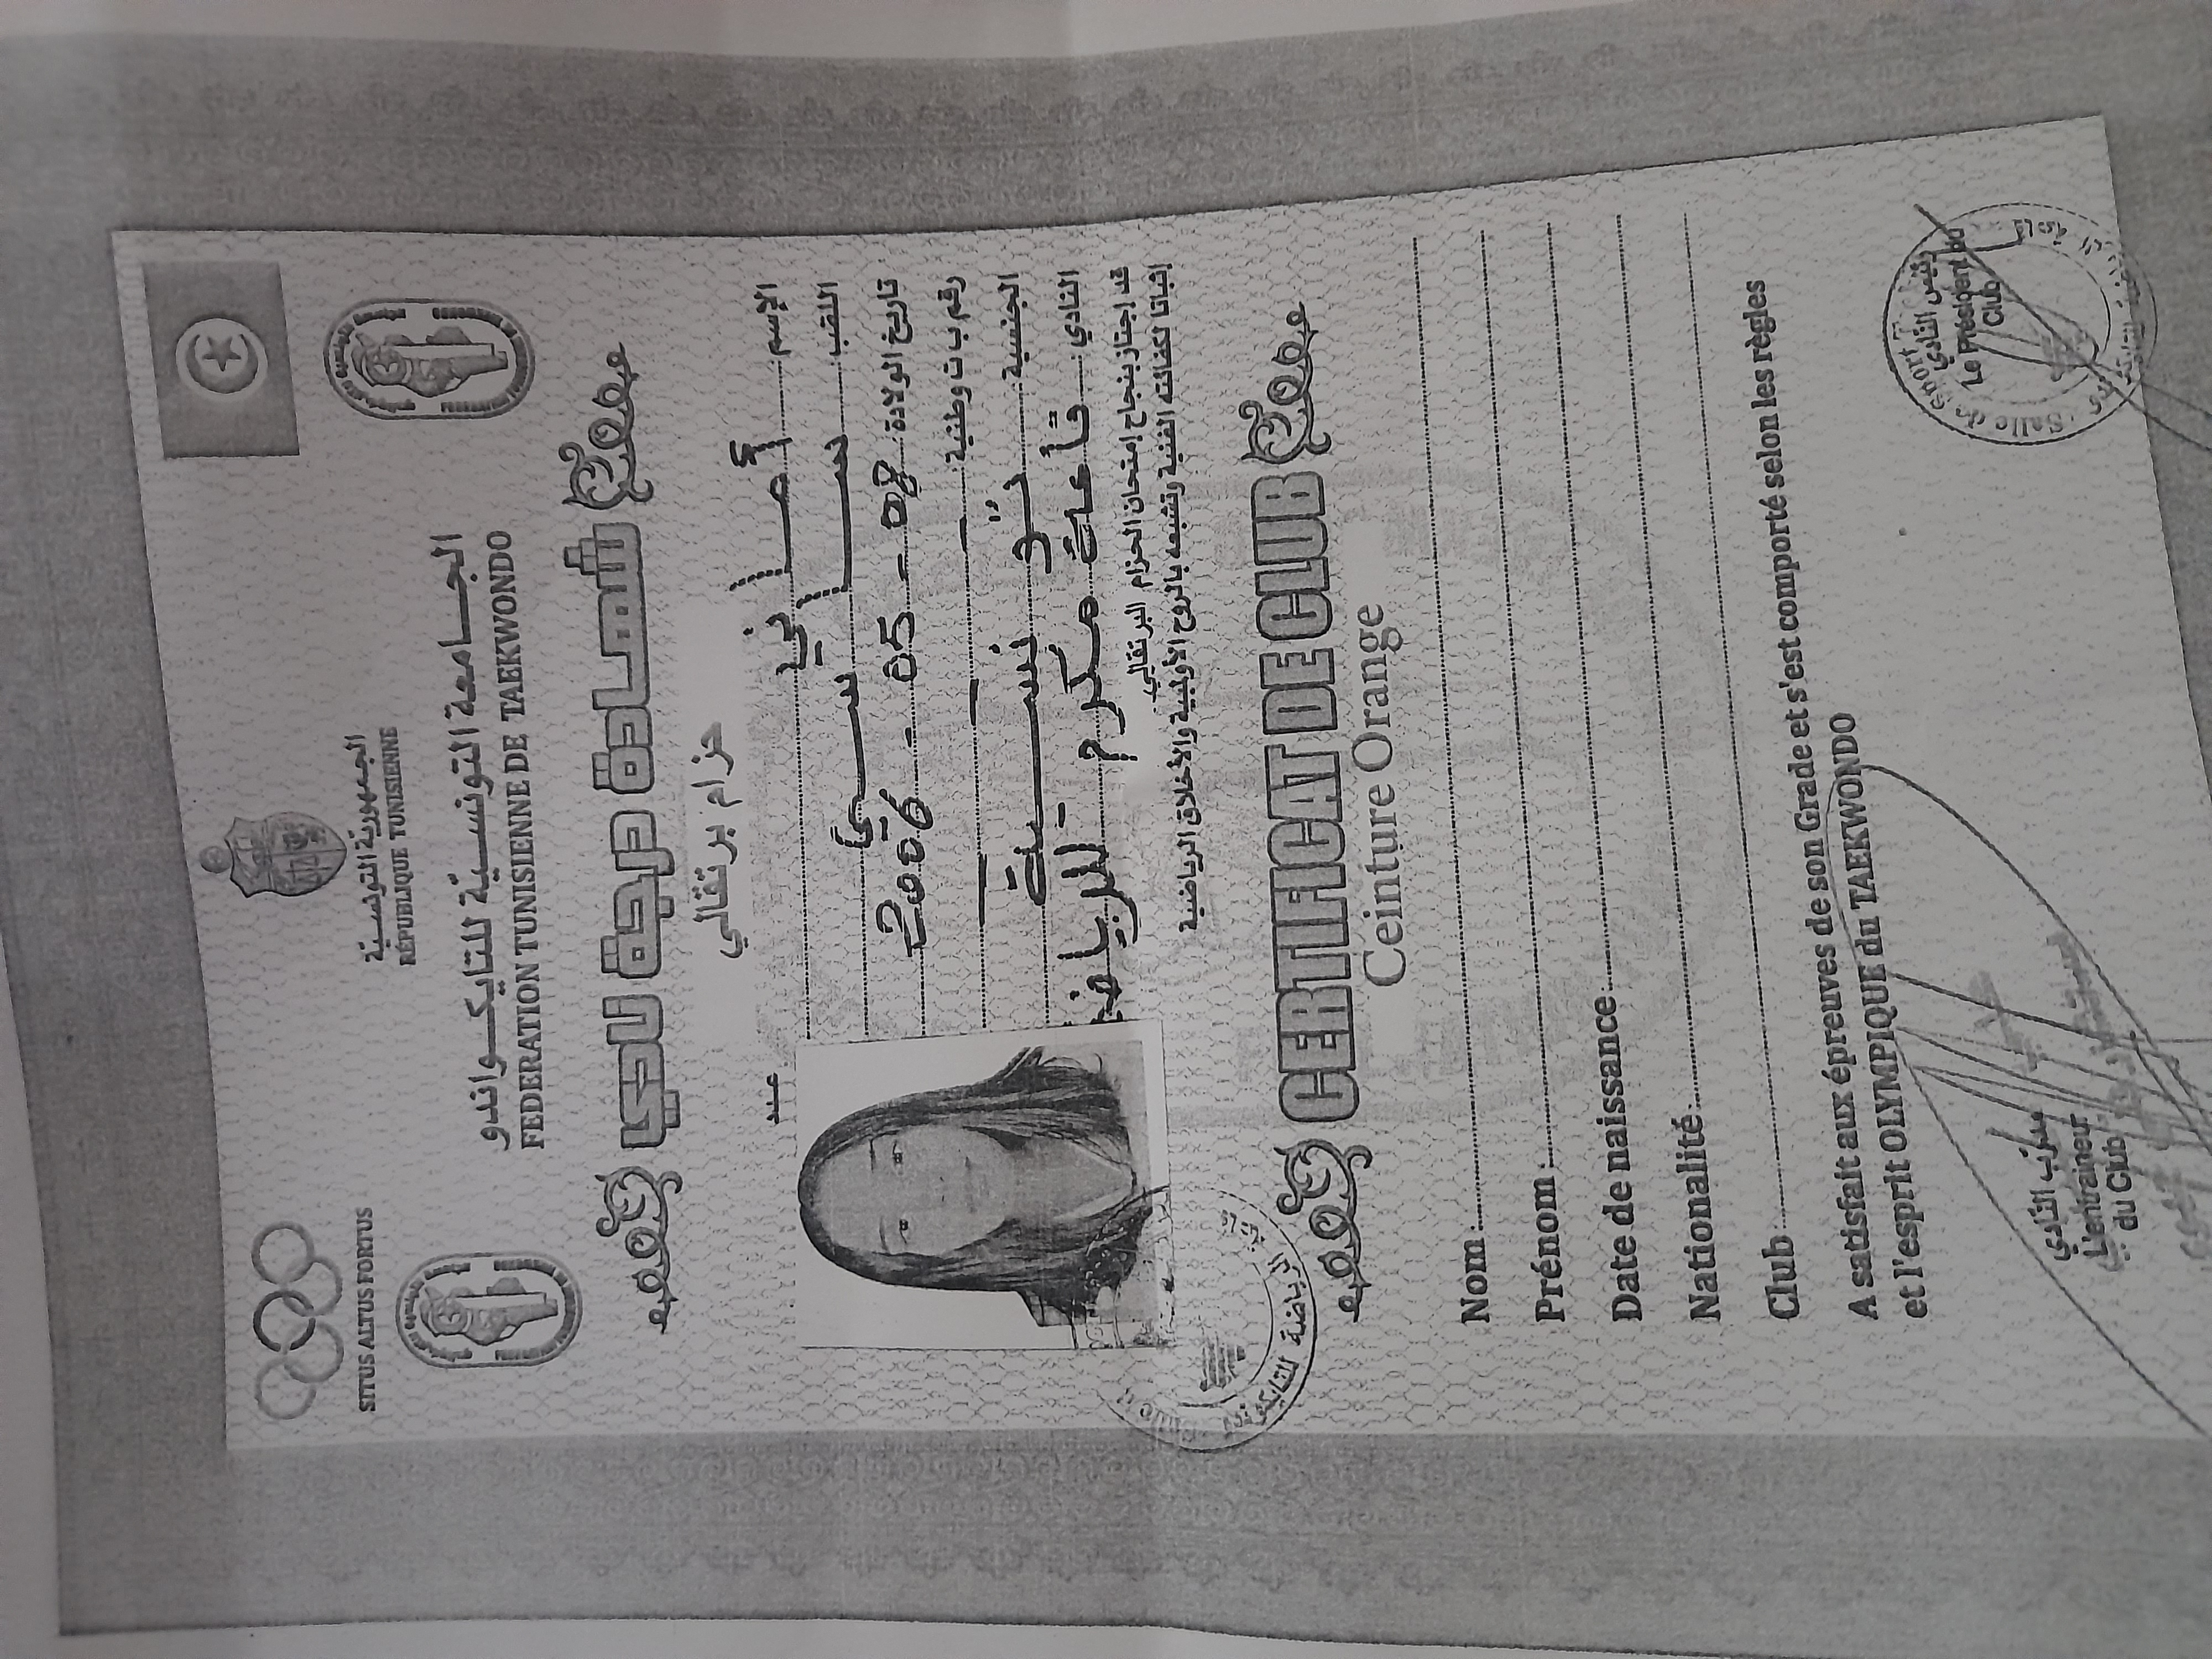 الجمهورية التونسية
RÉPUBLIQUE TUNISIENNE
SITUS ALTUS FORTUS
الجامعة التونسية للتايكواندو
FEDERATION TUNISIENNE DE TAEKWONDO
شهادة درجة نادي
حزام برتقالي
عدد
الإسم:
اللقب:
تاريخ الولادة: 08 - 05 - 2006
رقم ب ت وطنية:
الجنسية: تونسية
النادي: قاعة مكرم للرياضة
قد إجتاز بنجاح إمتحان الحزام البرتقالي
إثباتا لكفائته الفنية وتشبعه بالروح الأولمبية والأخلاق الرياضية
CERTIFICAT DE CLUB
Ceinture Orange
Nom:
Prénom:
Date de naissance:
Nationalité:
Club:
A satisfait aux épreuves de son Grade et s'est comporté selon les règles
et l'esprit OLYMPIQUE du TAEKWONDO
مدرب النادي
L'entraineur
du Club
رئيس النادي
Le Président du
Club
Salle de Sport